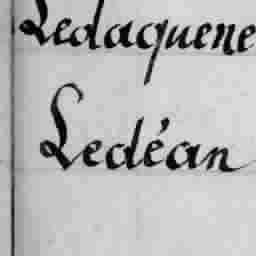 Ledaguene
Ledéan